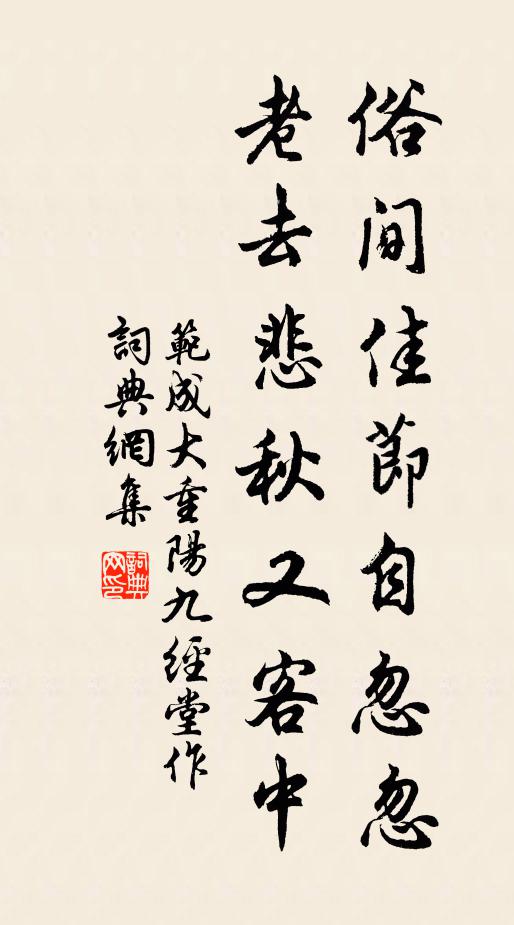 俗間佳節自忽忽
老去悲秋又客中
範成大重陽九經堂作
詞典網集
詞典網印